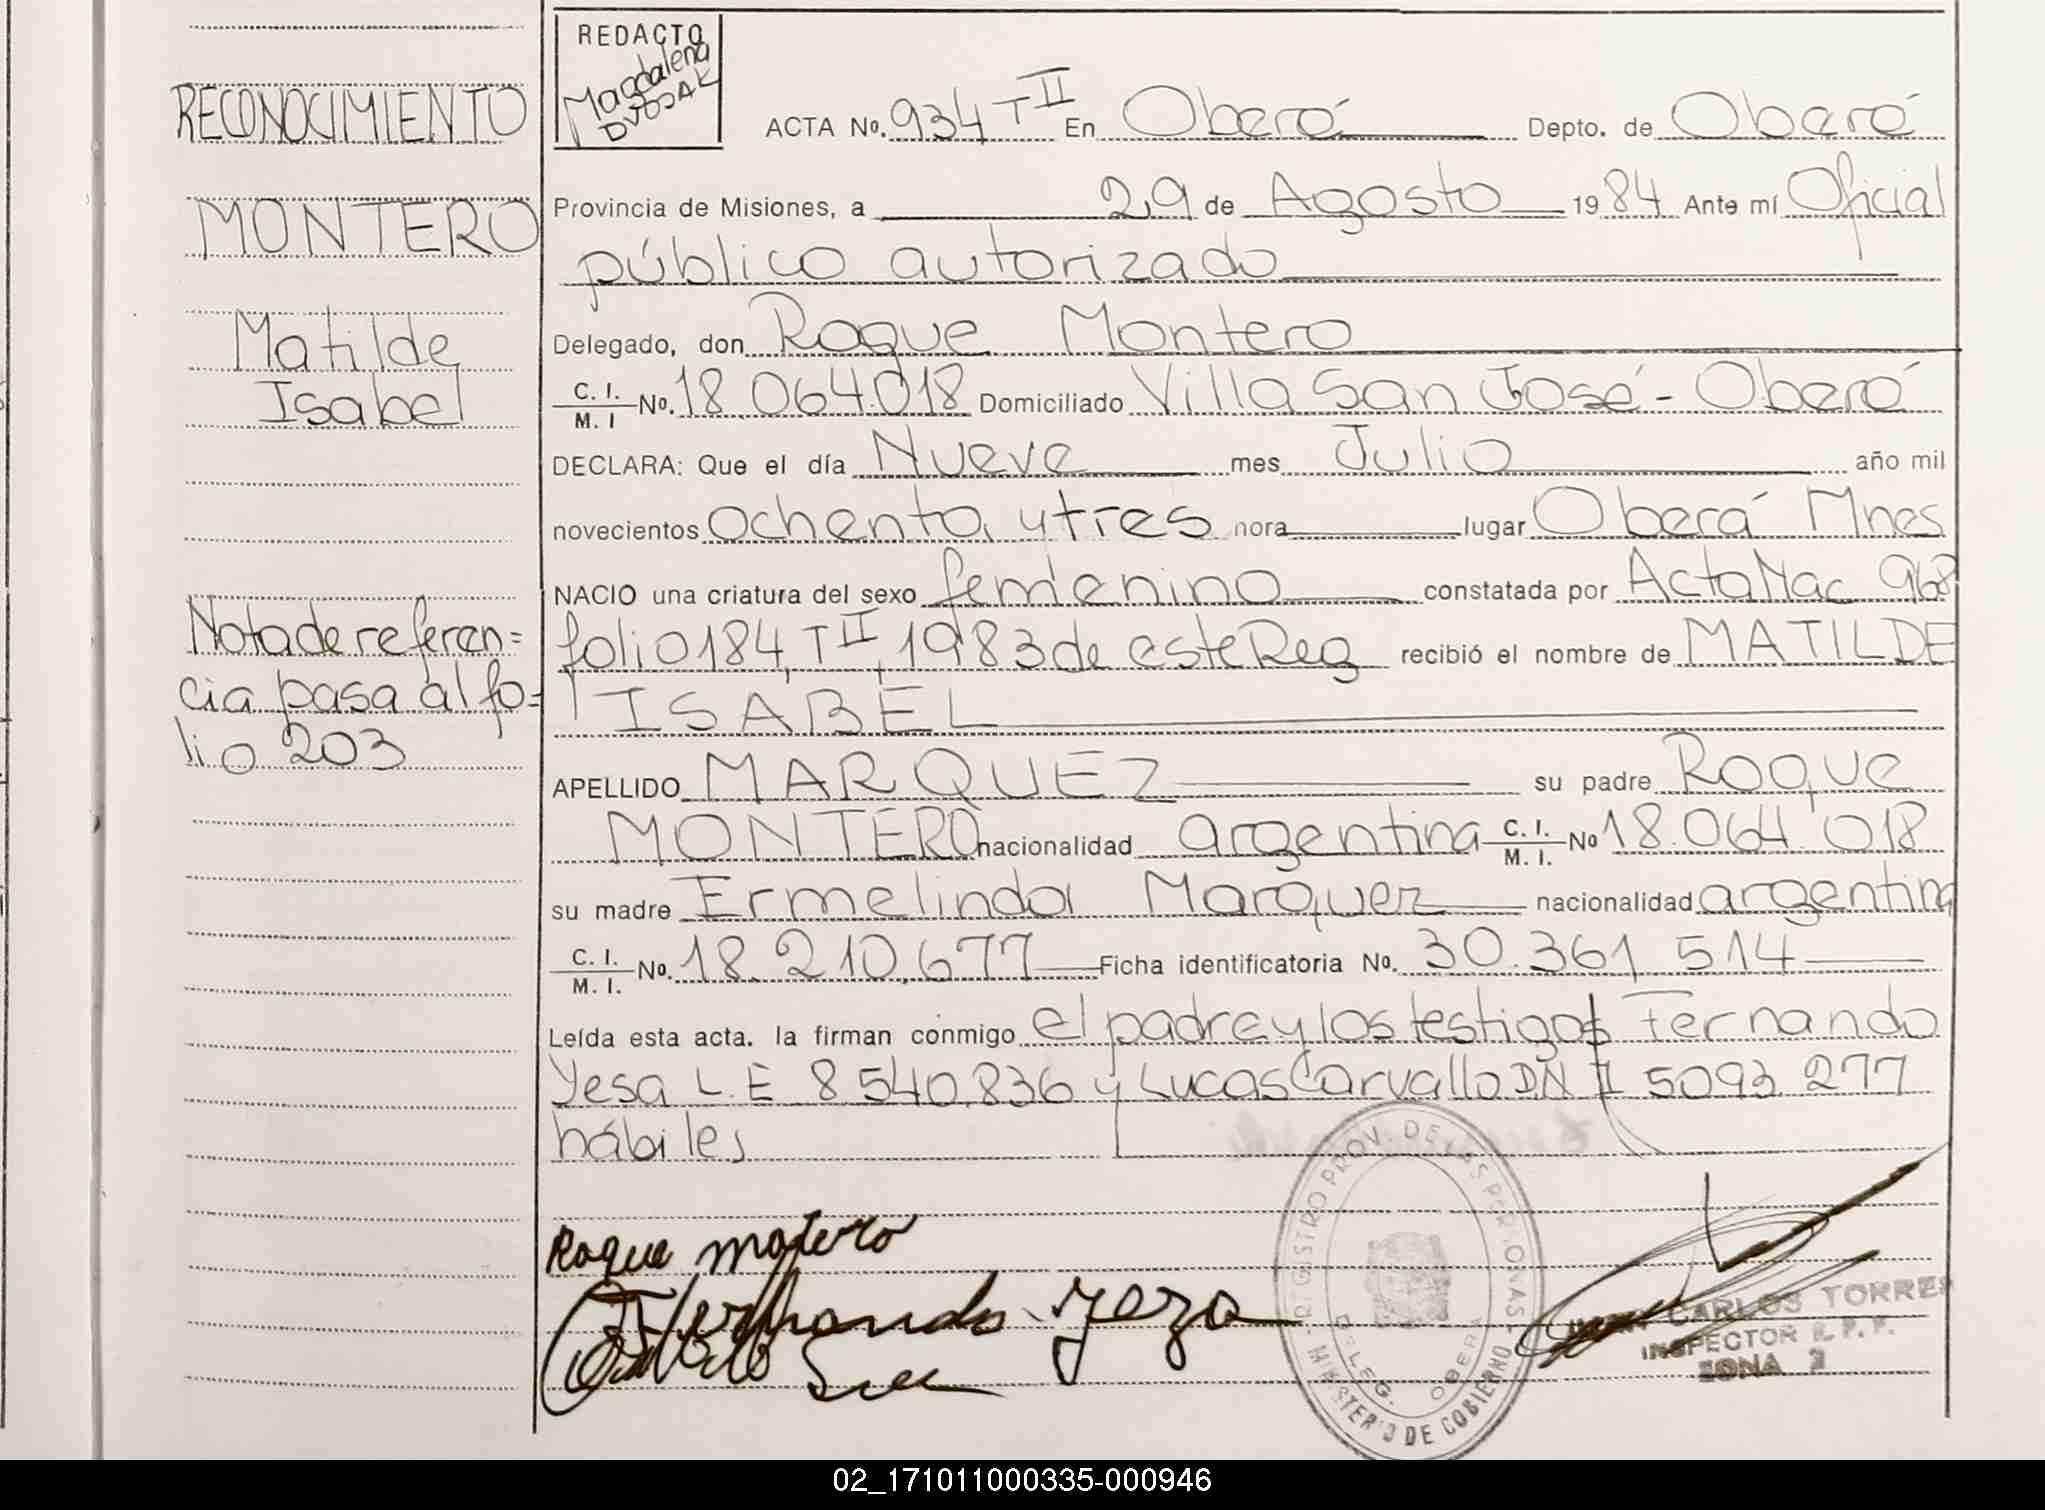 REDACTO
Magdalena
DVOSAK
RECONOCIMIENTO
ACTA No. 934 T II En Oberá Depto. de Oberá
MONTERO
Provincia de Misiones, a 29 de Agosto 1984 Ante mí Oficial
público autorizado
Matilde
Isabel
Delegado, don Roque Montero
C. I. M. I No. 18.064.018 Domiciliado Villa San José - Oberá
DECLARA: Que el día Nueve mes Julio año mil
novecientos ochenta y tres hora lugar Oberá Mnes
NACIO una criatura del sexo femenino constatada por Acta Nac 968
Nota de referen=
cia pasa al fo=
lio 203
folio 184, T II, 1983 de este Reg recibió el nombre de MATILDE
ISABEL
APELLIDO MARQUEZ su padre Roque
MONTERO nacionalidad argentina C. I. M. I. No 18.064.018
su madre Ermelinda Marquez nacionalidad argentina
C. I. M. I. No. 18.210.677 Ficha identificatoria No. 30.361.514
Leída esta acta. la firman conmigo el padre y los testigos Fernando
Yesa L.E 8.540.836 y Lucas Carvallo D.N.I 5093.277
hábiles
Roque motero
Fernando yeza
REGISTRO PROV. DE LAS PERSONAS
MINISTERIO DE GOBIERNO
DELEG. OBERA
JUAN CARLOS TORRES
INSPECTOR R. P. P.
ZONA 2
02_171011000335-000946